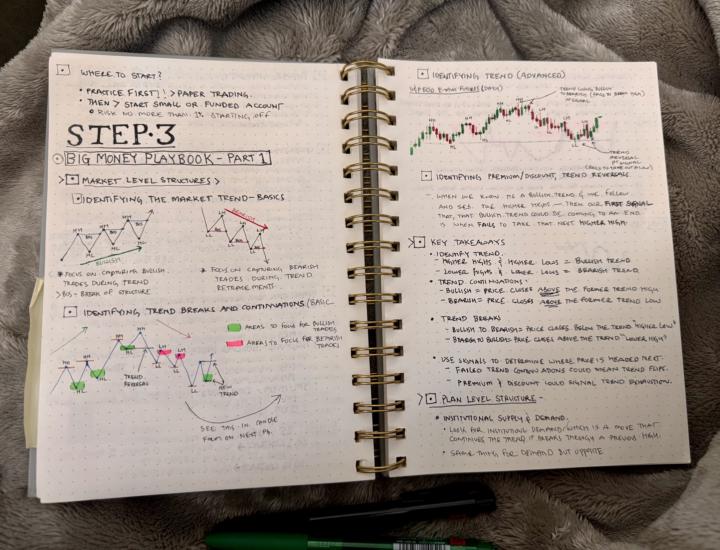 WHERE TO START?
• PRACTICE FIRST! > PAPER TRADING.
• THEN > START SMALL OR FUNDED ACCOUNT
• RISK NO MORE THAN 1% STARTING OFF
STEP·3
BIG MONEY PLAYBOOK - PART 1
> MARKET LEVEL STRUCTURES >
IDENTIFYING THE MARKET TREND - BASICS
HH
HH
HH
BOS
BOS
HL
HL
HL
BULLISH
LH
LH
LH
BOS
BOS
LL
LL
LL
* FOCUS ON CAPTURING BULLISH
TRADES DURING TREND
> BOS - BREAK OF STRUCTURE
* FOCUS ON CAPTURING BEARISH
TRADES DURING TREND
RETRACEMENTS
IDENTIFYING TREND BREAKS AND CONTINUATIONS (BASIC
AREAS TO FOCUS FOR BULLISH
TRADES
AREAS TO FOCUS FOR BEARISH
TRADES
HH
HH
HH
HH
HL
HL
HL
LH
LH
LL
LL
TREND
REVERSAL
NEW
TREND
SEE THIS IN CANDLE
FORM ON NEXT PG.
IDENTIFYING TREND (ADVANCED)
(DAILY)
HL
HL
LL
TREND
REVERSAL
SIGNAL
IDENTIFYING PREMIUM/DISCOUNT, TREND REVERSALS
- WHEN WE KNOW ITS A BULLISH TREND & WE FOLLOW
AND SEE THE HIGHER HIGHS — THEN OUR FIRST SIGNAL
THAT, THAT BULLISH TREND COULD BE COMING TO AN END
IS WHEN FAILS TO TAKE THAT NEXT HIGHER HIGH.
> KEY TAKEAWAYS
• IDENTIFY TREND.
- HIGHER HIGHS & HIGHER LOWS = BULLISH TREND
- LOWER HIGHS & LOWER LOWS = BEARISH TREND
• TREND CONTINUATIONS
- BULLISH = PRICE CLOSES ABOVE THE FORMER TREND HIGH
- BEARISH = PRICE CLOSES ABOVE THE FORMER TREND LOW
• TREND BREAKS
- BULLISH TO BEARISH = PRICE CLOSES BELOW THE TREND "HIGHER LOW"
- BEARISH TO BULLISH = PRICE CLOSES ABOVE THE TREND "LOWER HIGH"
• USE SIGNALS TO DETERMINE WHERE PRICE IS HEADED NEXT.
- FAILED TREND CONTINUATIONS COULD MEAN TREND FLIPS.
- PREMIUM & DISCOUNT COULD SIGNAL TREND EXHAUSTION.
> PLAN LEVEL STRUCTURE -
• INSTITUTIONAL SUPPLY & DEMAND.
• LOOK FOR INSTITUTIONAL DEMAND WHICH IS A MOVE THAT
CONTINUES THE TREND, IT BREAKS THROUGH A PREVIOUS HIGH.
• SAME THING FOR DEMAND BUT OPPOSITE